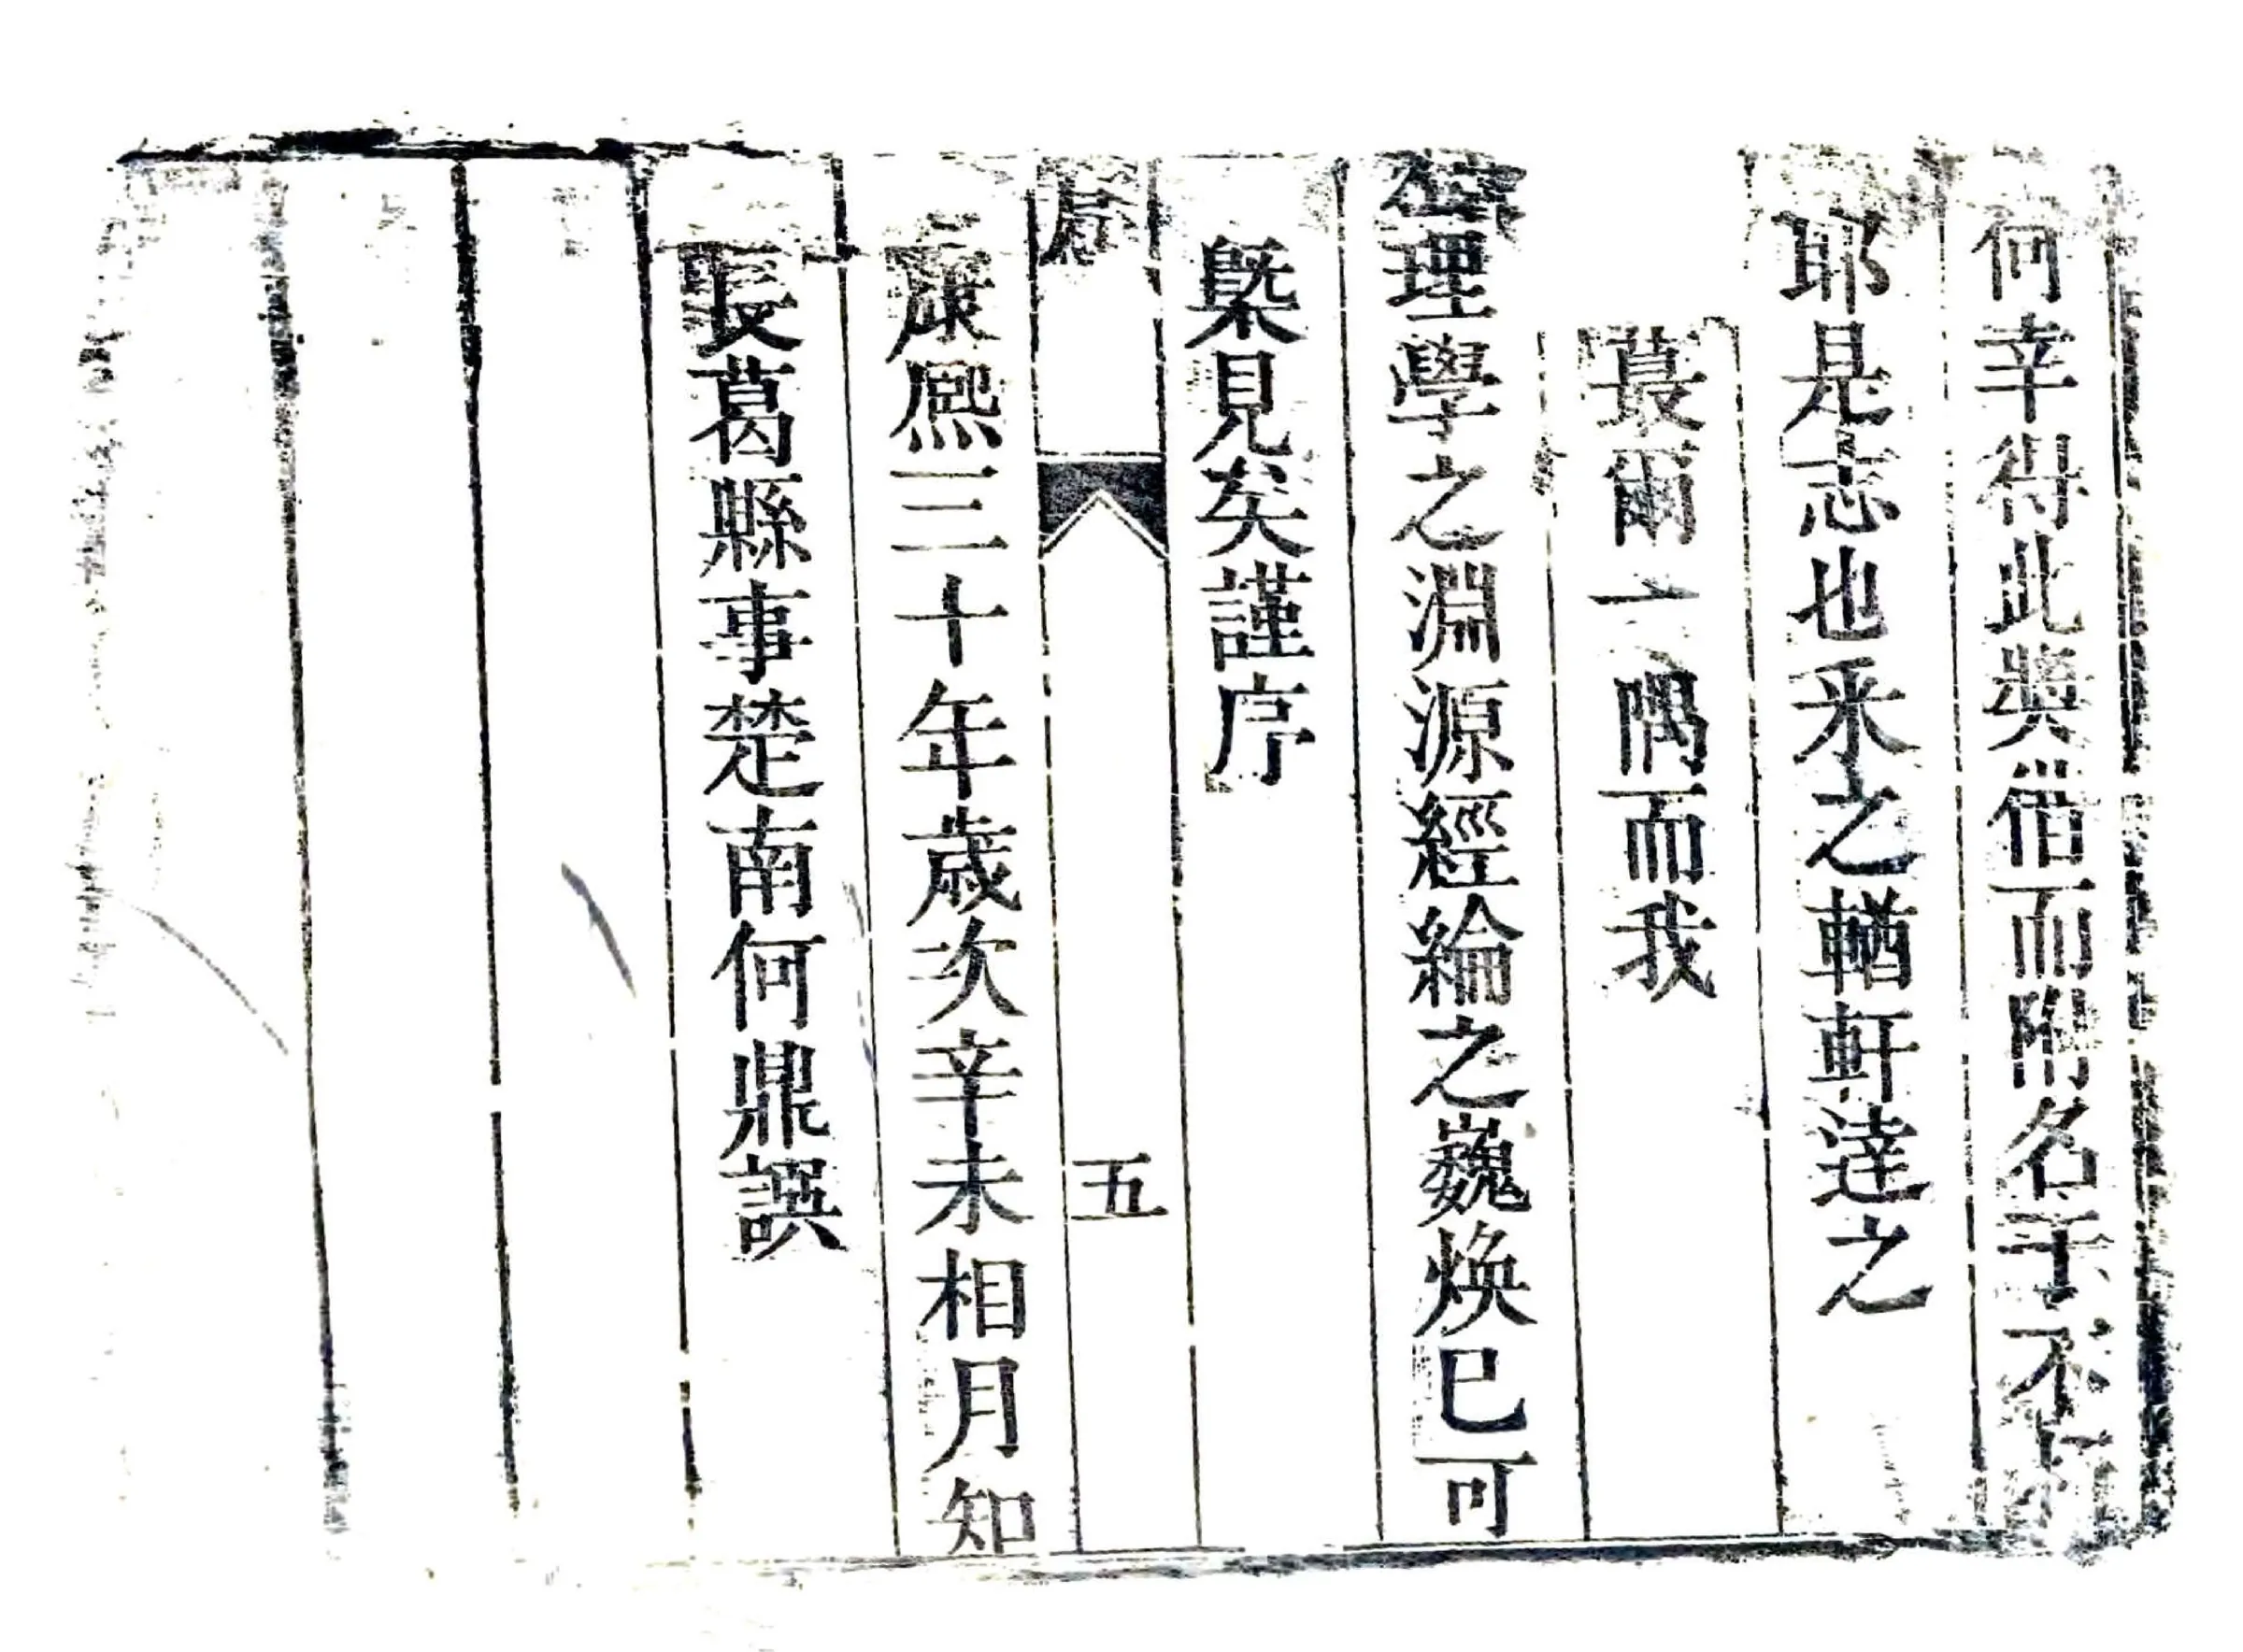 何幸得此奬借而附名于不朽
耶是志也采之輶軒達之
蕞爾一隅而我
理學之淵源經綸之巍煥已可
槩見矣謹序
序
五
康熙三十年歲次辛未相月知
長葛縣事楚南何鼎譔